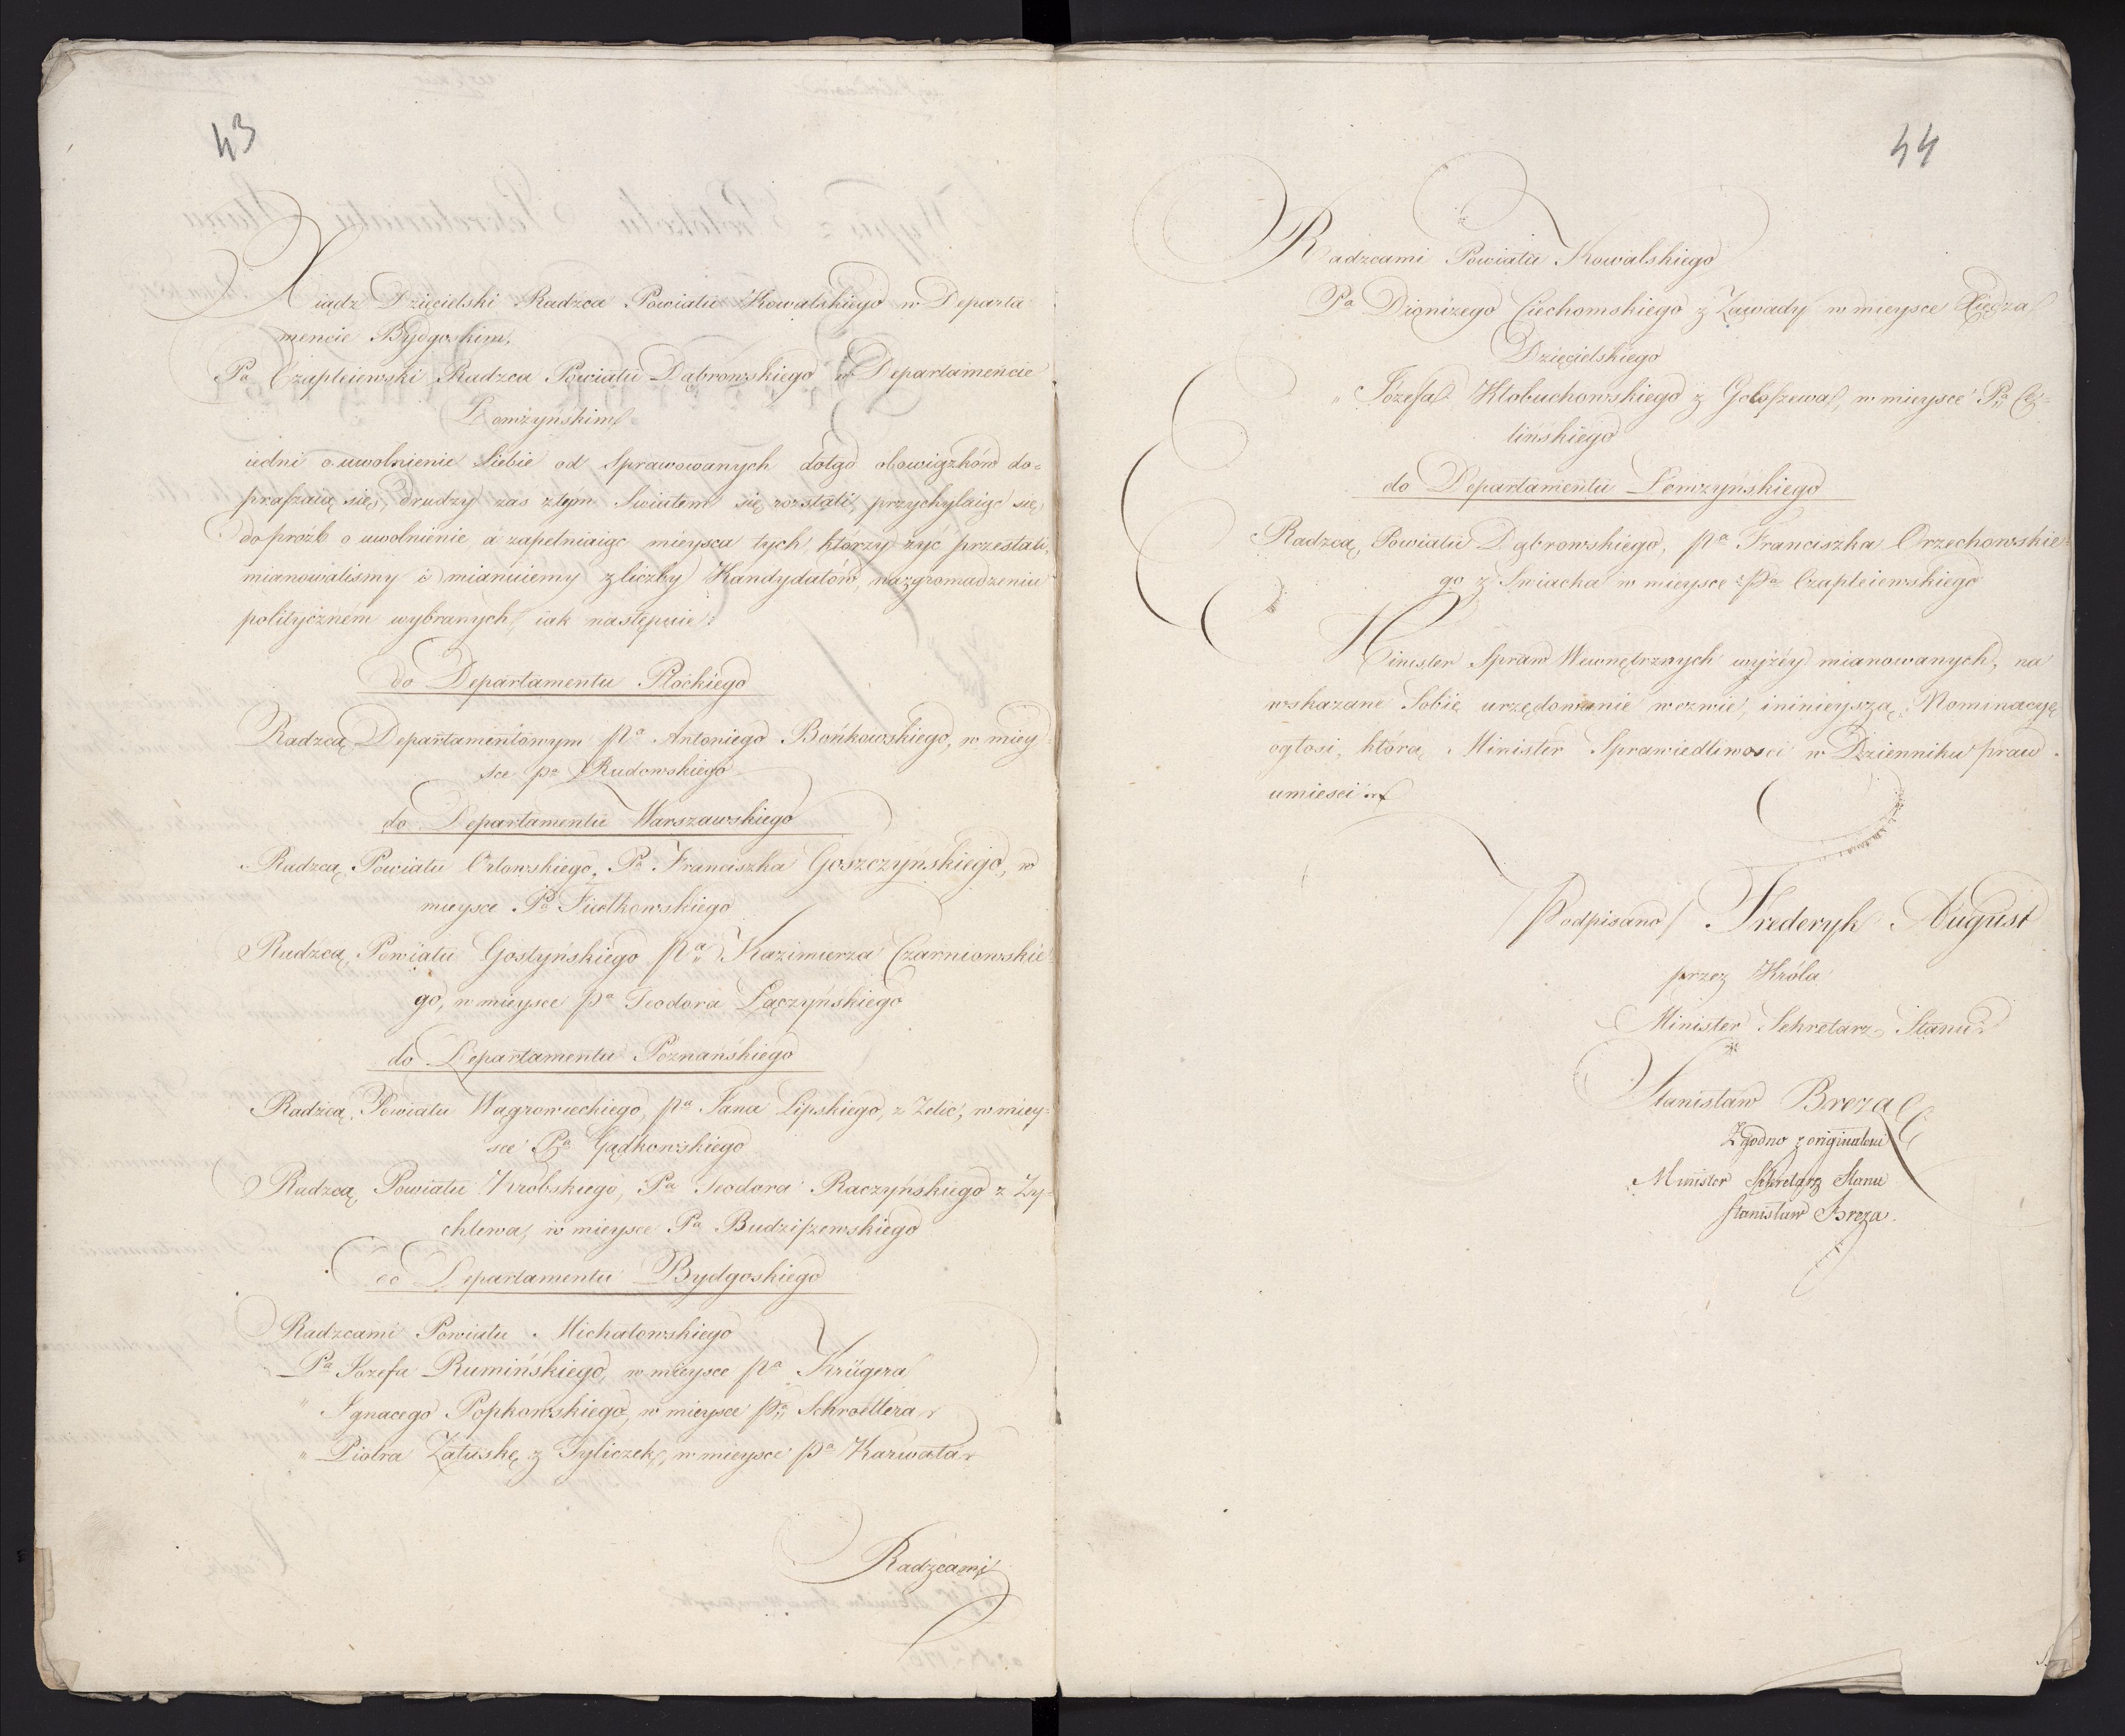 43
Xiądz Dzięcielski Radzca Powiatu Kowalskiego w Departa
mencie Bydgoskim,
Pa Czapleiewski Radzca Powiatu Dąbrowskiego w Departamencie
Łomżyńskim
iedni o uwolnienie Siebie od Sprawowanych dotąd obowiązków do=
praszaią się, drudzy zas ztym Swiatem się rozstali, przychylaiąc się
do próżb o uwolnienie a zapełniaiąc mieysca tych, którzy żyć przestali,
mianowalismy i mianuiemy z liczby Kandydatów, na zgromadzeniu
polityczném wybranych, iak następuie:
do Departamentu Płockiego
Radzcą Departamentowym Pa Antoniego Bońkowskiego, w miey=
sce Pa Rudowskiego
do Departamentu Warszawskiego
Radzcą Powiatu Orłowskiego, Pa Franciszka Goszczyńskiego, w
mieysce Pa Fiołkowskiego
Radzcą Powiatu Gostyńskiego Pa Kazimierza Czarniowskie=
go, w mieysce Pa Teodora Łączyńskiego
do Departamentu Poznańskiego
Radzcą Powiatu Wągrowieckiego Pa Jana Lipskiego, z Zelic, w miey=
sce Pa Gądkowskiego
Radzcą Powiatu Krobskiego, Pa Teodora Raczyńskiego z Zy=
chlewa, w mieysce Pa Budziszewskiego
do Departamentu Bydgoskiego
Radzcami Powiatu Michałowskiego
Pa Jozefa Rumińskiego, w mieysce Pa Krügera
" Ignacego Popkowskiego, w mieysce Pa Schroettera
" Piotra Załuskę z Tyliczek, w mieysce Pa Karwata
Radzcami
44
Radzcami Powiatu Kowalskiego
Pa Dionizego Ciechomskiego z Zawady w mieysce Xiędza
Dzięcielskiego
" Józefa Kłobuchowskiego z Gołoszewa, w mieysce Pa Ce=
lińskiego
do Departamentu Łomżyńskiego
Radzcą Powiatu Dąbrowskiego, Pa Franciszka Orzechowskie=
go z Swiacka w mieysce Pa Czapleiewskiego
Minister Spraw Wewnętrznych wyżéy mianowanych, na
wskazane Sobie urzędowanie wezwie, i ninieyszą Nominacyę
ogłosi, którą Minister Sprawiedliwosci w Dzienniku praw
umiesci
/Podpisano/ Frederyk August
przez Króla
Minister Sekretarz Stanu
Stanisław Breza
Zgodno z originałem
Minister Sekretarz Stanu
Stanisław Breza.